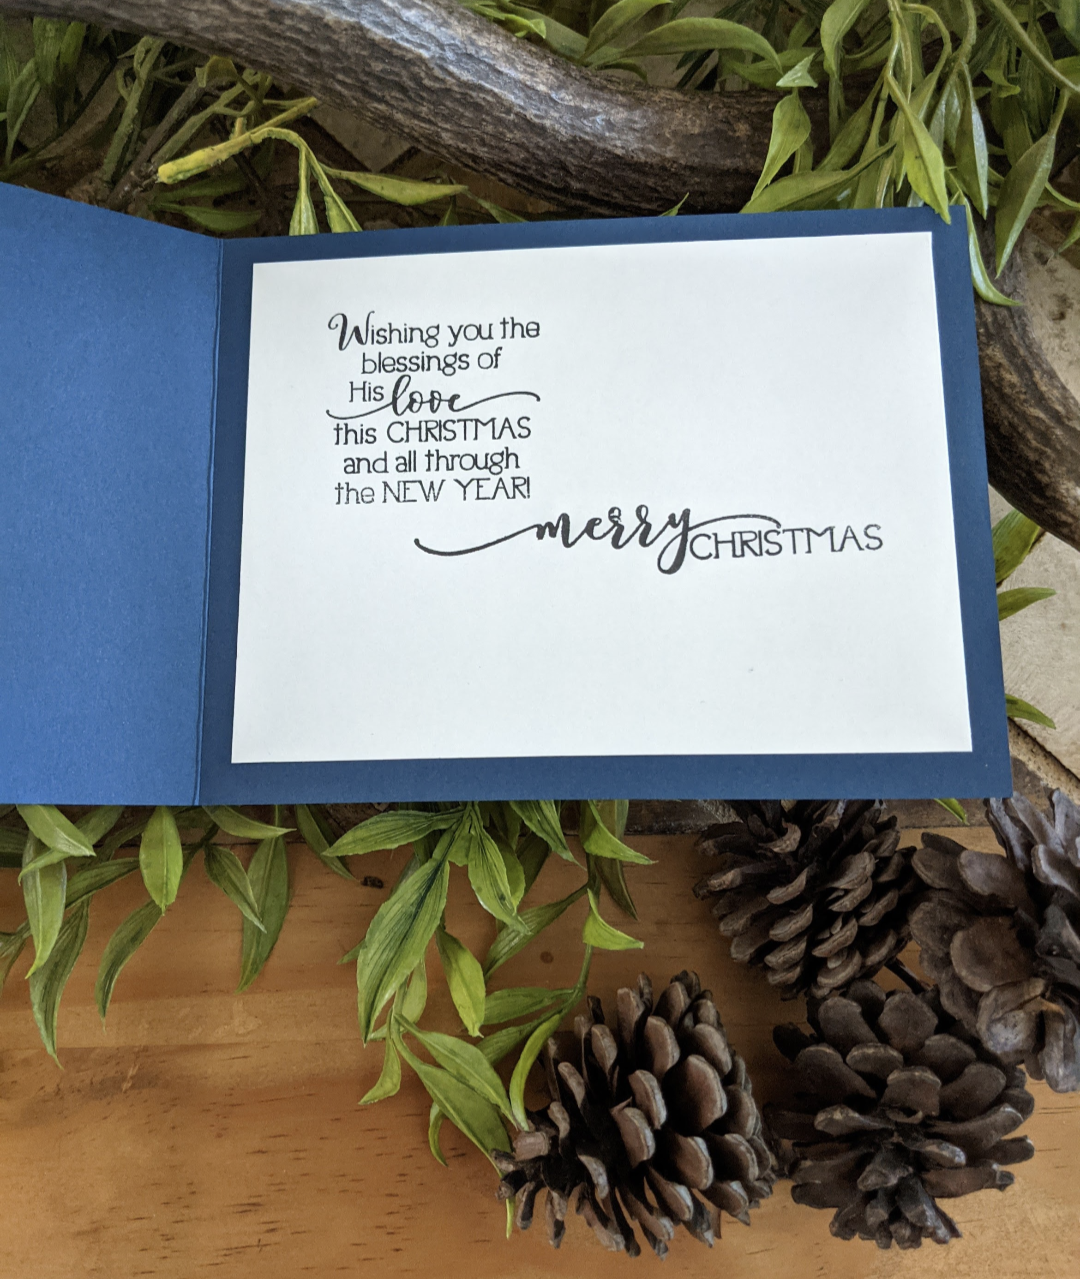 Wishing you the
blessings of
His love
this CHRISTMAS
and all through
the NEW YEAR!
merry CHRISTMAS